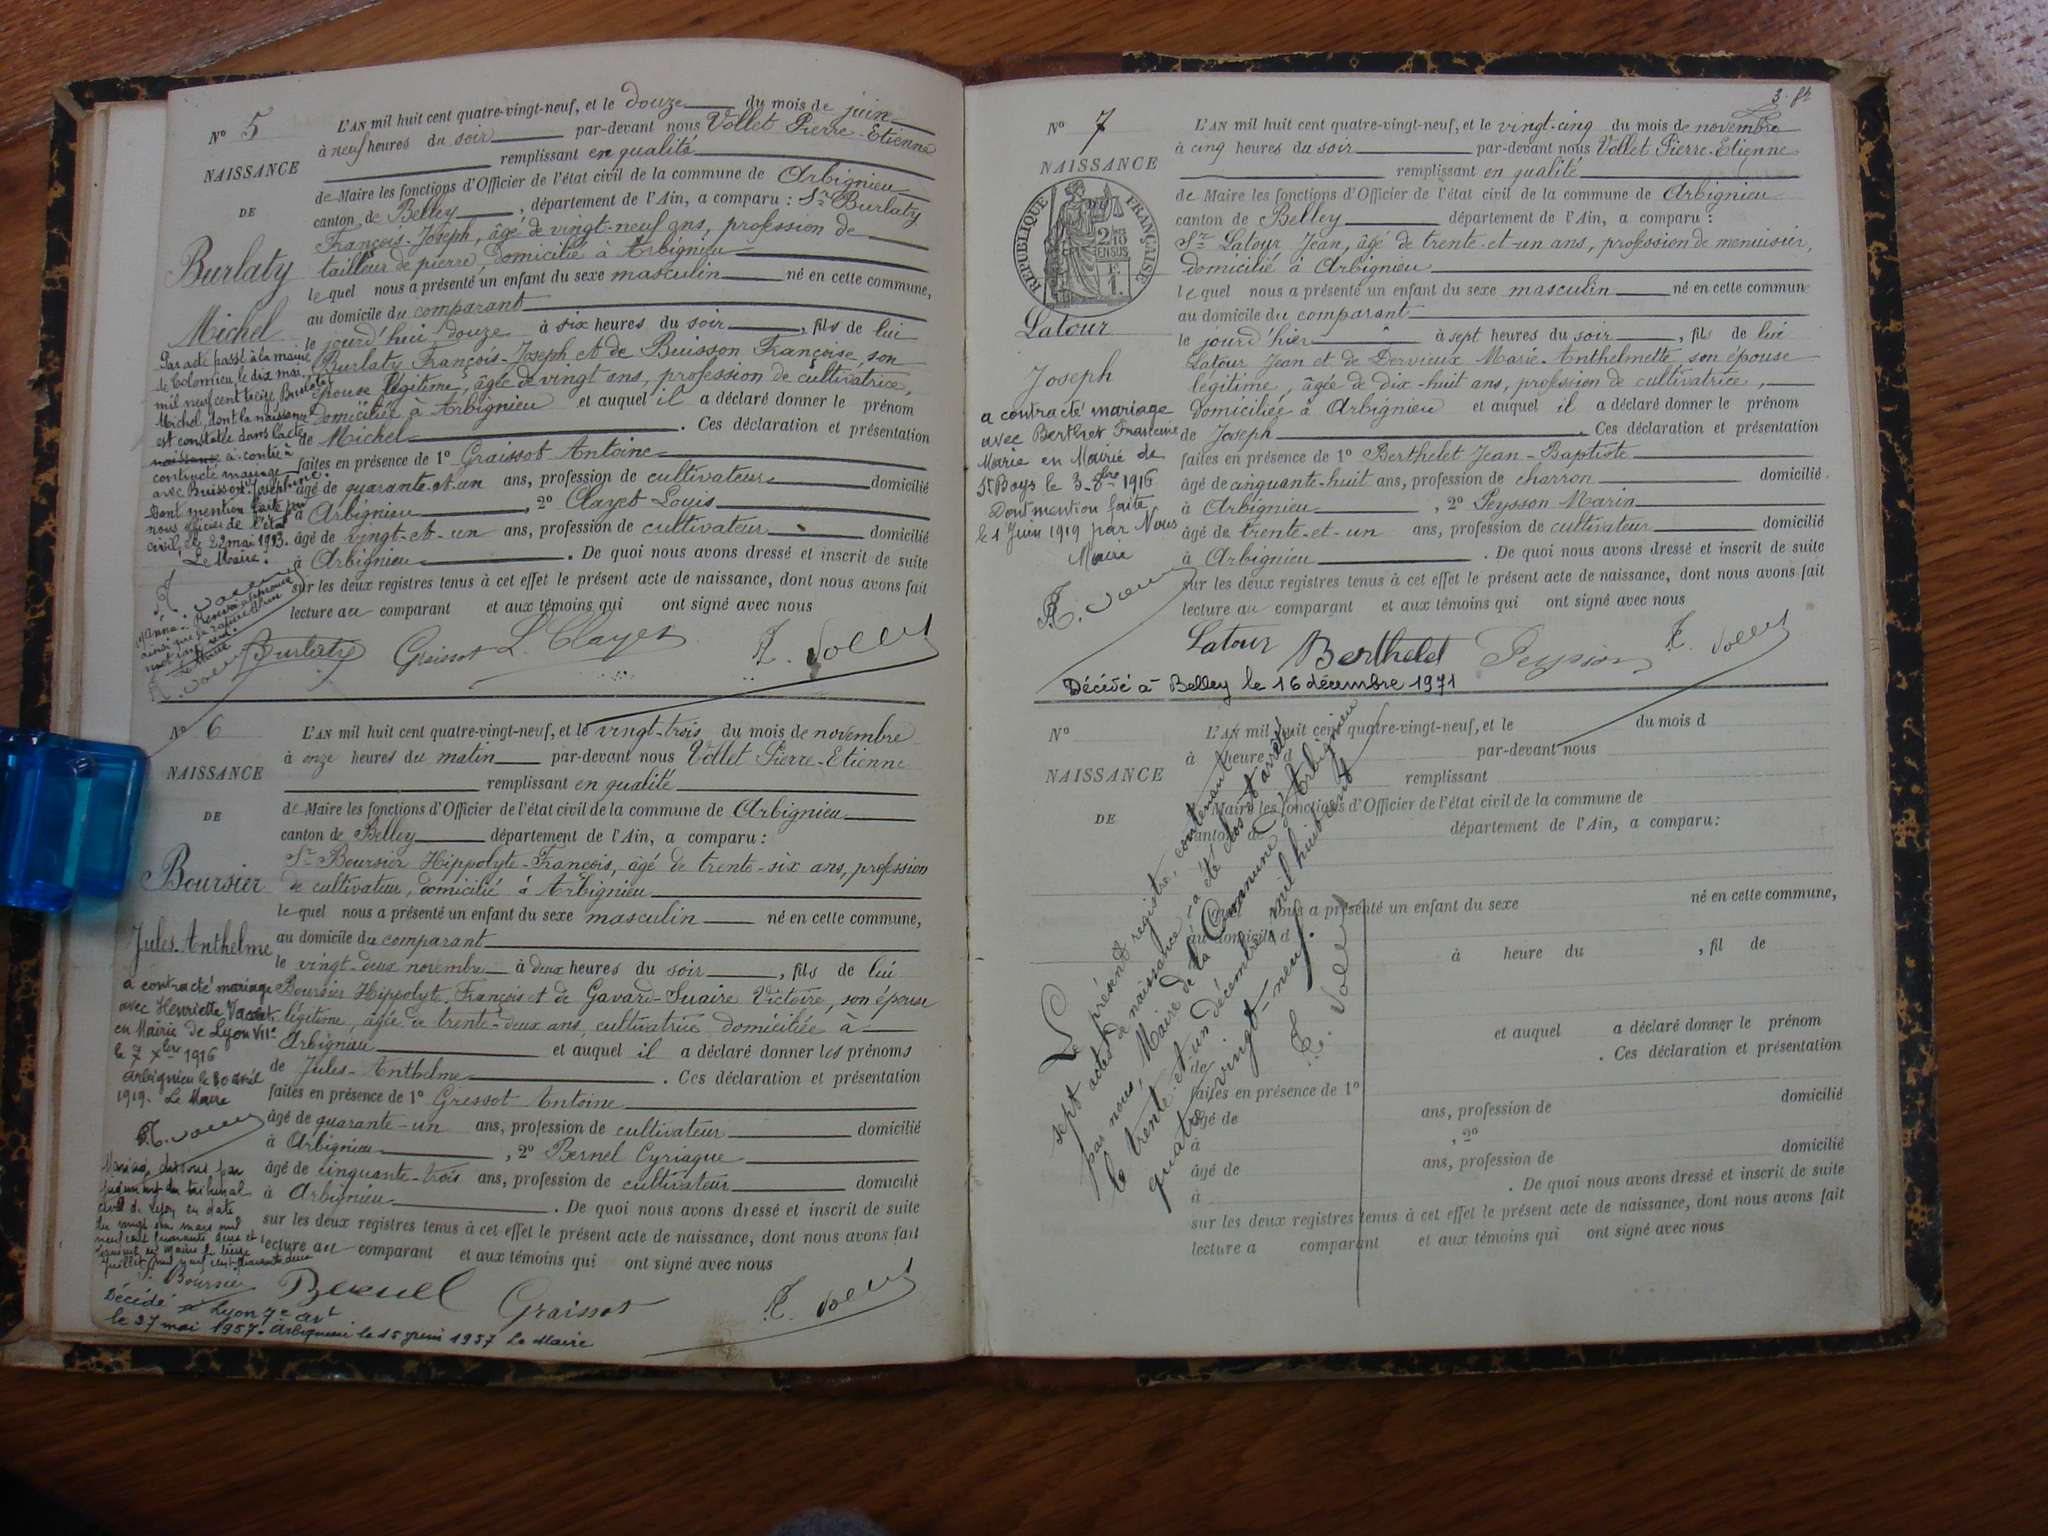 N° 5
NAISSANCE
DE
Burlaty
Michel
L'AN mil huit cent quatre-vingt-neuf, et le douze du mois de juin
à neuf heures du soir par-devant nous Vollet Pierre-Etienne
remplissant en qualité
de Maire les fonctions d'Officier de l'état civil de la commune de Arbignieu
canton de Belley, département de l'Ain, a comparu : Sr Burlaty
François-Joseph, âgé de vingt-neuf ans, profession de
tailleur de pierre, domicilié à Arbignieu
lequel nous a présenté un enfant du sexe masculin né en cette commune,
au domicile du comparant
le jourd'hui douze à six heures du soir, fils de lui
Burlaty François-Joseph et de Buisson Françoise, son
épouse légitime, âgée de vingt ans, profession de cultivatrice,
domiciliée à Arbignieu et auquel il a déclaré donner le prénom
de Michel. Ces déclaration et présentation
faites en présence de 1° Graissot Antoine
âgé de quarante-et-un ans, profession de cultivateur domicilié
à Arbignieu, 2° Clayet Louis
âgé de vingt-et-un ans, profession de cultivateur domicilié
à Arbignieu. De quoi nous avons dressé et inscrit de suite
sur les deux registres tenus à cet effet le présent acte de naissance, dont nous avons fait
lecture au comparant et aux témoins qui ont signé avec nous
Par acte passé à la mairie
de Colomieu, le dix mai
mil neuf cent treize Burlaty
Michel, dont la naissance
est constatée dans l'acte
naissance a
contracté mariage
avec Buisson Joséphine
Dont mention faite par
nous officier de l'état
civil, le 22 mai 1913.
Le Maire.
Burlaty Graissot L. Clayet Vollet
N° 6
NAISSANCE
DE
Boursier
Jules-Anthelme
L'AN mil huit cent quatre-vingt-neuf, et le vingt-trois du mois de novembre
à onze heures du matin par-devant nous Vollet Pierre-Etienne
remplissant en qualité
de Maire les fonctions d'Officier de l'état civil de la commune de Arbignieu
canton de Belley département de l'Ain, a comparu :
Sr Boursier Hippolyte-François, âgé de trente-six ans, profession
de cultivateur, domicilié à Arbignieu
lequel nous a présenté un enfant du sexe masculin né en cette commune,
au domicile du comparant
le vingt-deux novembre à deux heures du soir, fils de lui
Boursier Hippolyte-François et de Gavard-Suaire Victoire, son épouse
légitime, âgée de trente-deux ans, cultivatrice domiciliée à
Arbignieu et auquel il a déclaré donner les prénoms
de Jules-Anthelme. Ces déclaration et présentation
faites en présence de 1° Gressot Antoine
âgé de quarante-un ans, profession de cultivateur domicilié
à Arbignieu, 2° Bernel Cyriaque
âgé de cinquante-trois ans, profession de cultivateur domicilié
à Arbignieu. De quoi nous avons dressé et inscrit de suite
sur les deux registres tenus à cet effet le présent acte de naissance, dont nous avons fait
lecture au comparant et aux témoins qui ont signé avec nous
a contracté mariage
avec Henriette
en Mairie de Lyon VIIe
le 7 Xbre 1916
Arbignieu le 30 avril
1919. Le Maire
Mariage dissous par
jugement du tribunal
civil de Lyon en date
Boursier Bernel Graissot Vollet
Décédé à Lyon 7e art
le 27 mai 1957. Arbignieu le 15 juin 1957 Le Maire
N° 7
NAISSANCE
RÉPUBLIQUE FRANÇAISE
2/10 EN SUS
1 F.
Latour
Joseph
L'AN mil huit cent quatre-vingt-neuf, et le vingt-cinq du mois de novembre
à cinq heures du soir par-devant nous Vollet Pierre-Etienne
remplissant en qualité
de Maire les fonctions d'Officier de l'état civil de la commune de Arbignieu
canton de Belley département de l'Ain, a comparu :
Sr Latour Jean, âgé de trente-et-un ans, profession de menuisier,
domicilié à Arbignieu
lequel nous a présenté un enfant du sexe masculin né en cette commune
au domicile du comparant
le jourd'hier à sept heures du soir, fils de lui
Latour Jean et de Dervieux Marie-Anthelmette son épouse
légitime, âgée de dix-huit ans, profession de cultivatrice,
domiciliée à Arbignieu et auquel il a déclaré donner le prénom
de Joseph. Ces déclaration et présentation
faites en présence de 1° Berthelet Jean-Baptiste
âgé de cinquante-huit ans, profession de charron domicilié
à Arbignieu, 2° Peysson Marin
âgé de trente-et-un ans, profession de cultivateur domicilié
à Arbignieu. De quoi nous avons dressé et inscrit de suite
sur les deux registres tenus à cet effet le présent acte de naissance, dont nous avons fait
lecture au comparant et aux témoins qui ont signé avec nous
a contracté mariage
avec Berthet Francine
Marie en Mairie de
St Boys le 3 8bre 1916
Dont mention faite
le 1 Juin 1919 par Nous
Maire
Latour Berthelet Peysson Vollet
Décédé à Belley le 16 décembre 1971
N°
NAISSANCE
DE
L'AN mil huit cent quatre-vingt-neuf, et le du mois d
à heure d par-devant nous
remplissant
de Maire les fonctions d'Officier de l'état civil de la commune de
canton de département de l'Ain, a comparu :
lequel nous a présenté un enfant du sexe né en cette commune,
au domicile d
à heure du , fil de
et auquel a déclaré donner le prénom
de . Ces déclaration et présentation
faites en présence de 1°
âgé de ans, profession de domicilié
à , 2°
âgé de ans, profession de domicilié
à . De quoi nous avons dressé et inscrit de suite
sur les deux registres tenus à cet effet le présent acte de naissance, dont nous avons fait
lecture a comparant et aux témoins qui ont signé avec nous
Le présent registre, contenant
sept actes de naissance a été clos et arrêté
par nous, Maire de la Commune d'Arbignieu
le trente et un décembre mil huit cent
quatre vingt-neuf.
Vollet